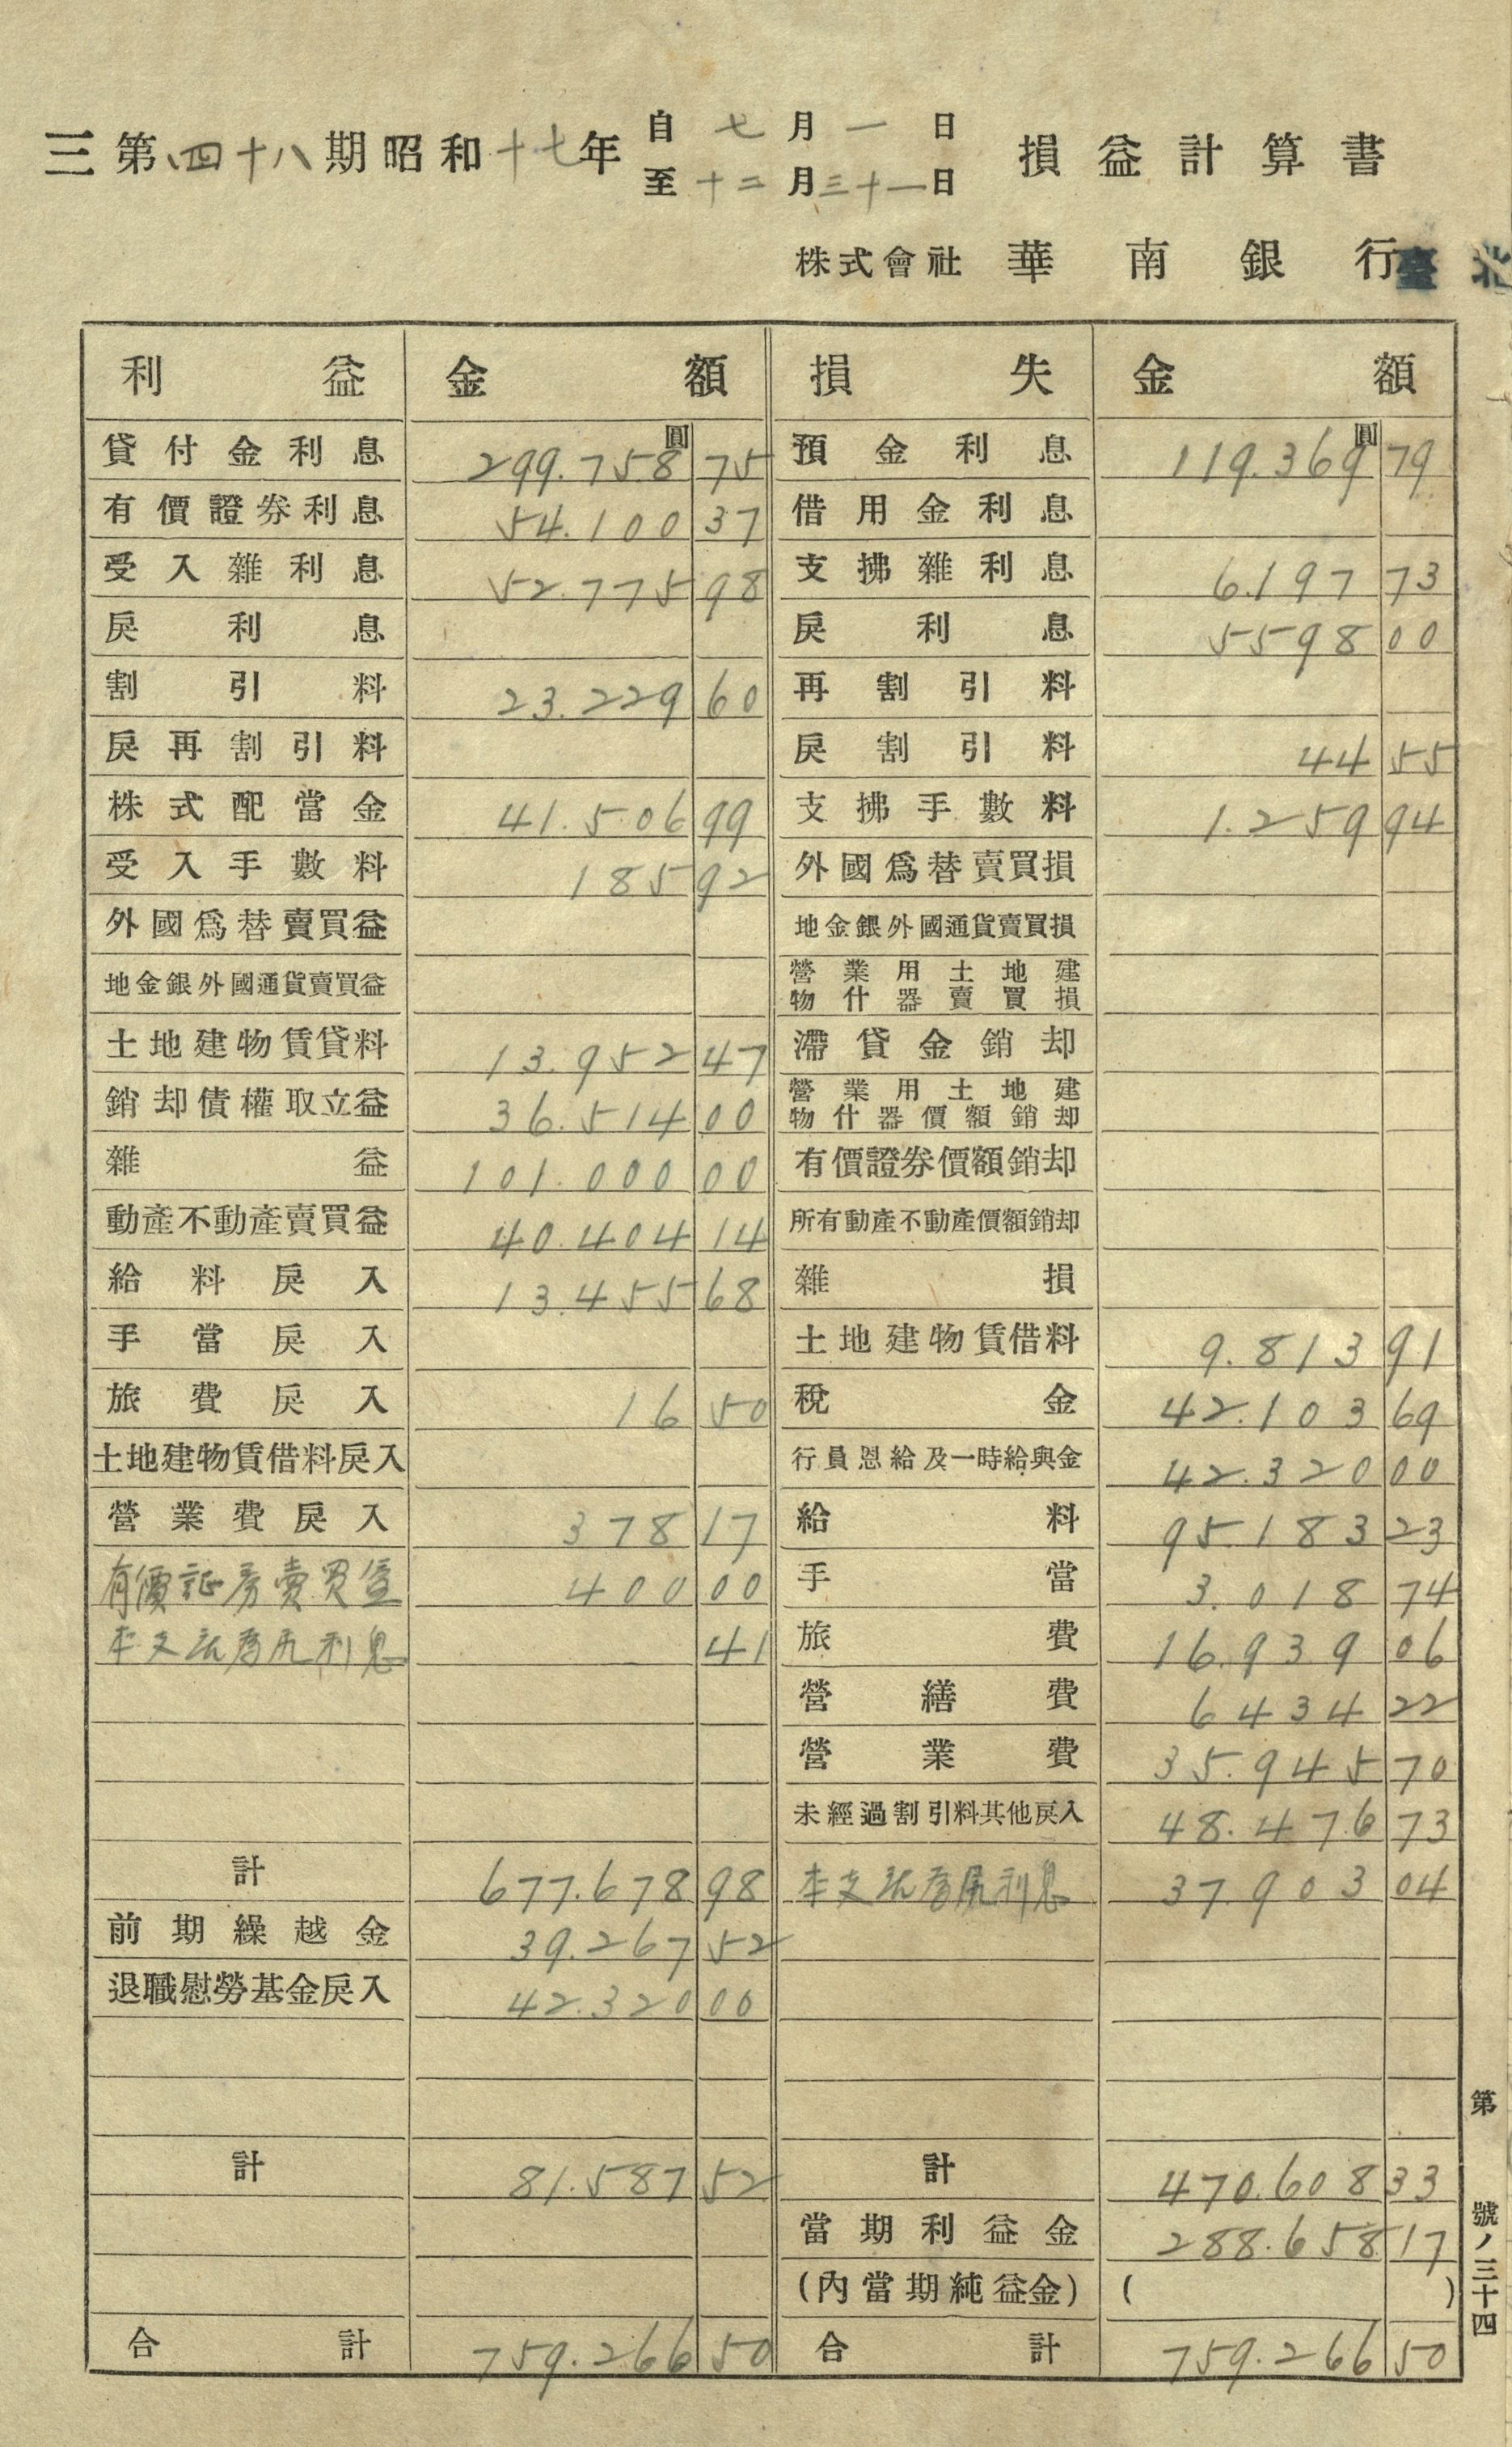 三 第四十八期昭和十七年 自七月一日 至十二月三十一日 損益計算書
株式會社 華南銀行 臺北
利益 金額 損失 金額
貸付金利息 299.758圓75 預金利息 119.369圓79
有價證券利息 54.100 37 借用金利息
受入雜利息 52.775 98 支拂雜利息 6.197 73
戾利息 戾利息 5598 00
割引料 23.229 60 再割引料
戾再割引料 戾割引料 44 55
株式配當金 41.506 99 支拂手數料 1.259 94
受入手數料 185 92 外國爲替賣買損
外國爲替賣買益 地金銀外國通貨賣買損
地金銀外國通貨賣買益 營業用土地建物什器賣買損
土地建物賃貸料 13.952 47 滯貸金銷却
銷却債權取立益 36.514 00 營業用土地建物什器價額銷却
雜益 101.000 00 有價證券價額銷却
動產不動產賣買益 40.404 14 所有動產不動產價額銷却
給料戾入 13.455 68 雜損
手當戾入 土地建物賃借料 9.813 91
旅費戾入 16 50 稅金 42.103 69
土地建物賃借料戾入 行員恩給及一時給與金 42.320 00
營業費戾入 378 17 給料 95.183 23
有價証券賣買益 400 00 手當 3.018 74
本支店爲尻利息 41 旅費 16.939 06
營繕費 6434 22
營業費 35.945 70
未經過割引料其他戾入 48.476 73
計 677.678 98 本支店爲尻利息 37.903 04
前期繰越金 39.267 52
退職慰勞基金戾入 42.320 00
計 81.587 52 計 470.608 33
當期利益金 288.658 17
(內當期純益金) ( )
合計 759.266 50 合計 759.266 50
第 號ノ三十四